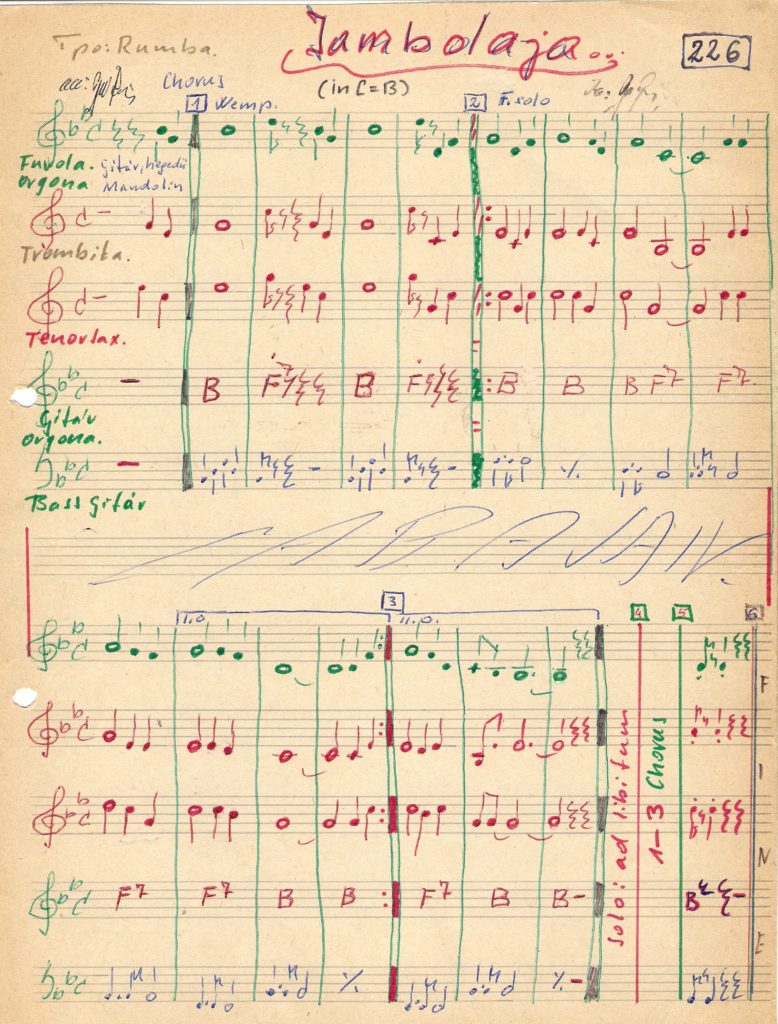 Jambolaja...
226
Tpo: Rumba.
Chorus
(in C=B)
1
2
F. solo
Fuvola. Gitár, hegedű
Orgona Mandolin
Trombita.
Tenorsax.
B F7 B F7 B B B F7 F7
Gitár
Orgona.
Bass Gitár
3
I. 0.
II. 0.
4
5
6
solo: ad libitum
1-3 Chorus
FINE
F7 F7 B B F7 B B- B